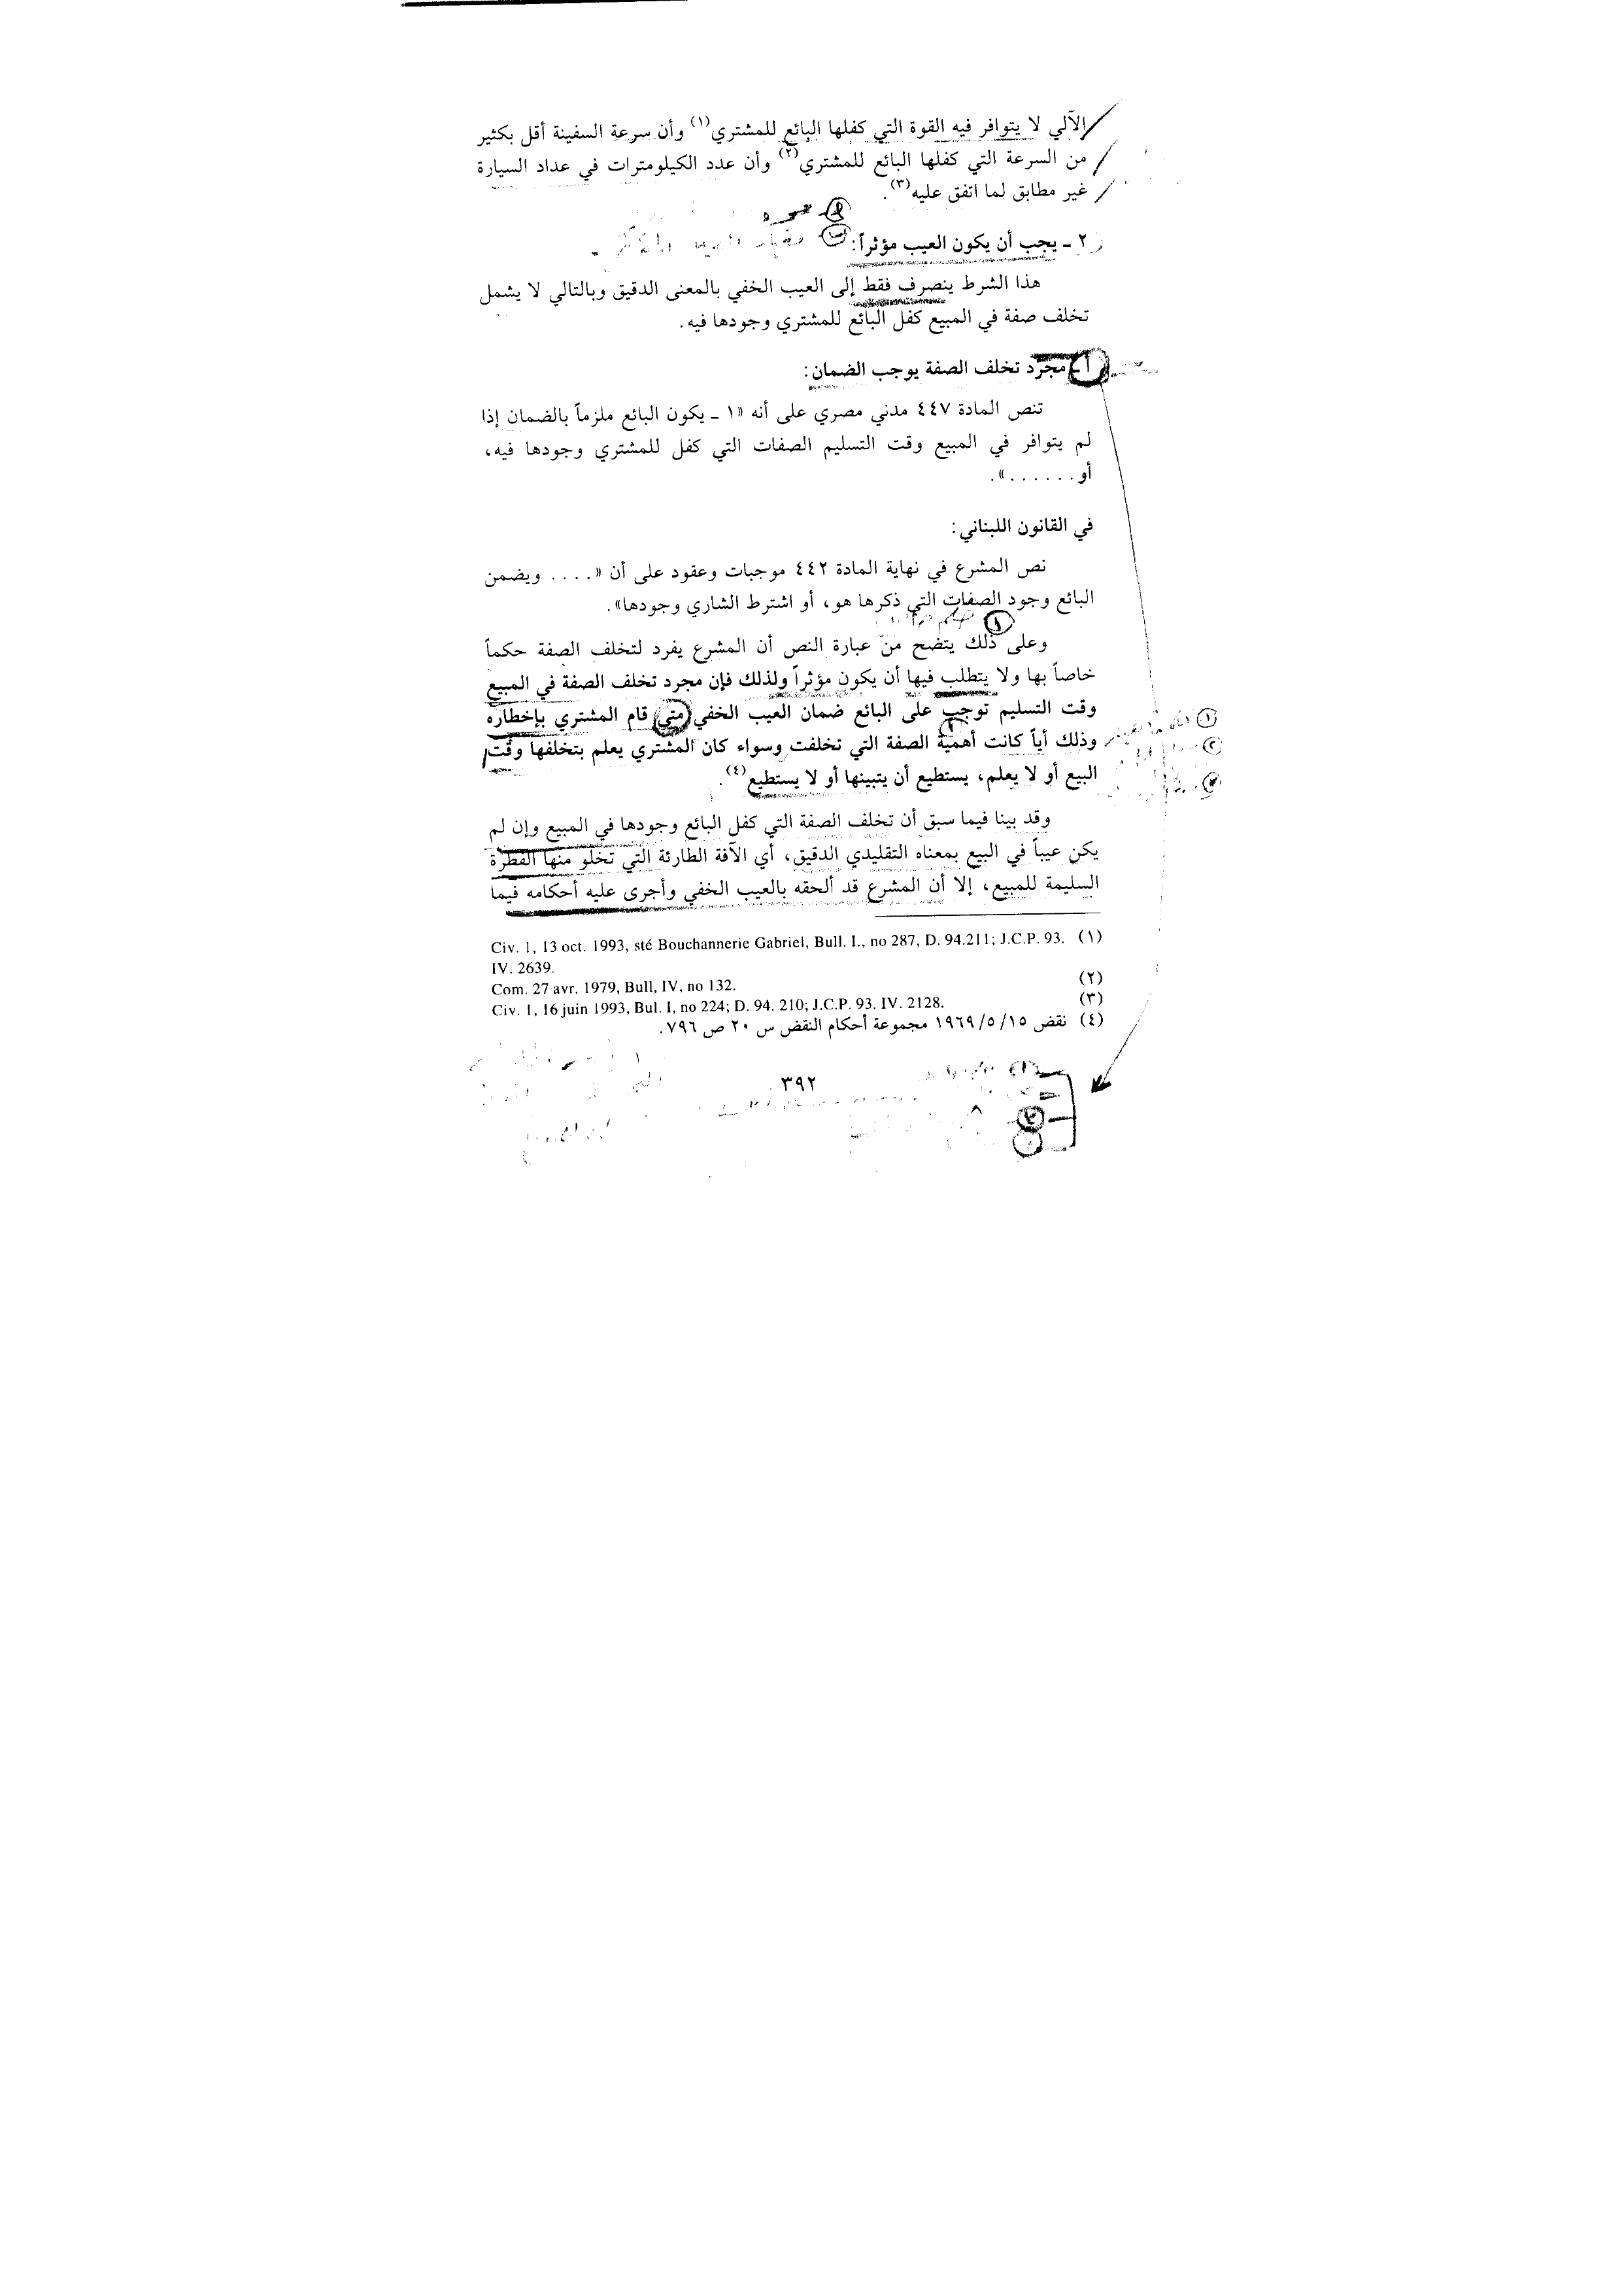 الآلي لا يتوافر فيه القوة التي كفلها البائع للمشتري(١) وأن سرعة السفينة أقل بكثير
من السرعة التي كفلها البائع للمشتري(٢) وأن عدد الكيلومترات في عداد السيارة
غير مطابق لما اتفق عليه(٣).
٢ ـ يجب أن يكون العيب مؤثراً:
هذا الشرط ينصرف فقط إلى العيب الخفي بالمعنى الدقيق وبالتالي لا يشمل
تخلف صفة في المبيع كفل البائع للمشتري وجودها فيه.
أ ـ مجرد تخلف الصفة يوجب الضمان:
تنص المادة ٤٤٧ مدني مصري على أنه «١ ـ يكون البائع ملزماً بالضمان إذا
لم يتوافر في المبيع وقت التسليم الصفات التي كفل للمشتري وجودها فيه،
أو......».
في القانون اللبناني:
نص المشرع في نهاية المادة ٤٤٢ موجبات وعقود على أن «.... ويضمن
البائع وجود الصفات التي ذكرها هو، أو اشترط الشاري وجودها».
وعلى ذلك يتضح من عبارة النص أن المشرع يفرد لتخلف الصفة حكماً
خاصاً بها ولا يتطلب فيها أن يكون مؤثراً ولذلك فإن مجرد تخلف الصفة في المبيع
وقت التسليم توجب على البائع ضمان العيب الخفي متى قام المشتري بإخطاره
وذلك أياً كانت أهمية الصفة التي تخلفت وسواء كان المشتري يعلم بتخلفها وقت
البيع أو لا يعلم، يستطيع أن يتبينها أو لا يستطيع(٤).
وقد بينا فيما سبق أن تخلف الصفة التي كفل البائع وجودها في المبيع وإن لم
يكن عيباً في البيع بمعناه التقليدي الدقيق، أي الآفة الطارئة التي تخلو منها الفطرة
السليمة للمبيع، إلا أن المشرع قد ألحقه بالعيب الخفي وأجرى عليه أحكامه فيما
(١) Civ. 1, 13 oct. 1993, sté Bouchannerie Gabriel, Bull. I., no 287, D. 94.211; J.C.P. 93.
IV. 2639.
(٢) Com. 27 avr. 1979, Bull, IV, no 132.
(٣) Civ. 1, 16 juin 1993, Bul. I, no 224; D. 94. 210; J.C.P. 93. IV. 2128.
(٤) نقض ١٩٦٩/٥/١٥ مجموعة أحكام النقض س ٢٠ ص ٧٩٦.
٣٩٢